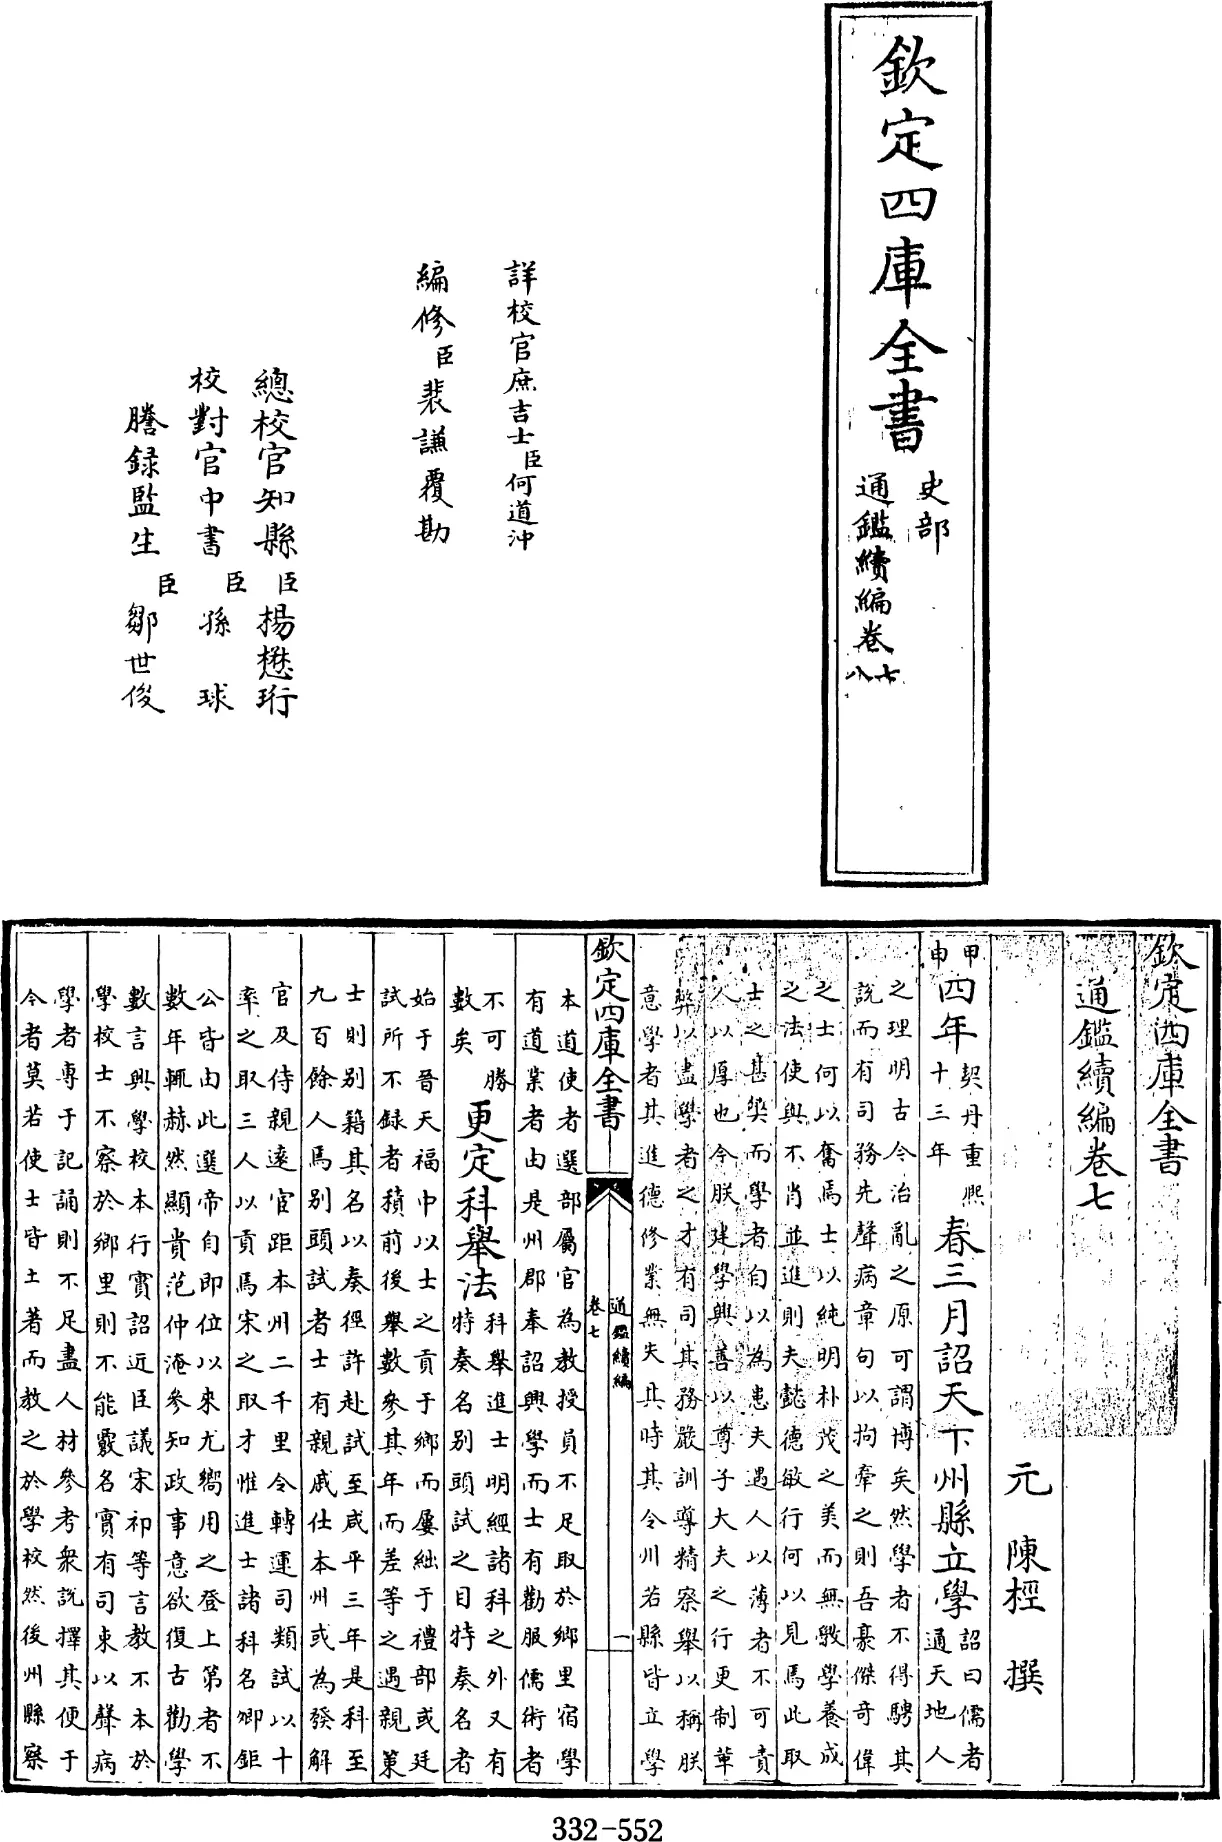 欽定四庫全書
史部
通鑑續編卷七八
詳校官庶吉士臣何道沖
編修臣裴謙覆勘
總校官知縣臣楊懋珩
校對官中書臣孫球
謄錄監生臣鄒世俊
欽定四庫全書
通鑑續編卷七
元 陳桱 撰
甲申四年契丹重熙十三年春三月詔天下州縣立學詔曰儒者通天地人
之理明古今治亂之原可謂博矣然學者不得騁其
說而有司務先聲病章句以拘牽之則吾豪傑奇偉
之士何以奮焉士以純明朴茂之美而無斆學養成
之法使與不肖並進則夫懿德敏行何以見焉此取
士之甚獘而學者自以為患夫遇人以薄者不可責
人以厚也今朕建學興善以尊子大夫之行更制革
弊以盡學者之才有司其務嚴訓導精察舉以稱朕
意學者其進德修業無失其時其令州若縣皆立學
欽定四庫全書
通鑑續編
卷七
一
本道使者選部屬官為教授員不足取於鄉里宿學
有道業者由是州郡奉詔興學而士有勸服儒術者
不可勝數矣更定科舉法科舉進士明經諸科之外又有特奏名别頭試之目特奏名者
始于晉天福中以士之貢于鄉而屢絀于禮部或廷
試所不録者積前後舉數參其年而差等之遇親策
士則别籍其名以奏徑許赴試至咸平三年是科至
九百餘人焉别頭試者士有親戚仕本州或為發解
官及侍親遠宦距本州二千里令轉運司類試以十
率之取三人以貢焉宋之取才惟進士諸科名卿鉅
公皆由此選帝自即位以來尤嚮用之登上第者不
數年輒赫然顯貴范仲淹參知政事意欲復古勸學
數言興學校本行實詔近臣議宋祁等言教不本於
學校士不察於鄉里則不能覈名實有司束以聲病
學者專于記誦則不足盡人材參考衆說擇其便于
今者莫若使士皆土著而教之於學校然後州縣察
332-552